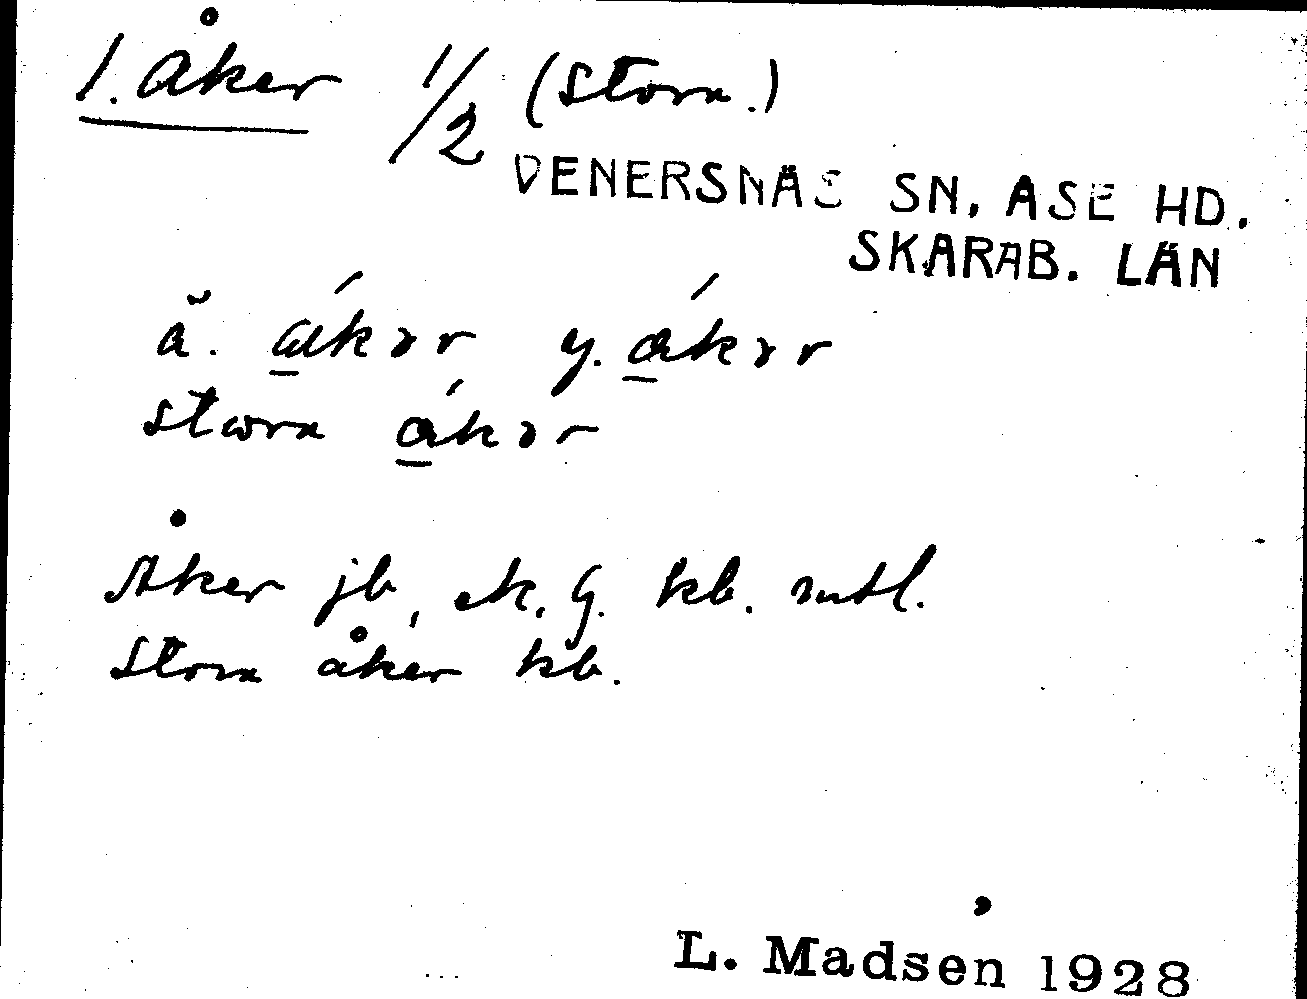 1. Åker 1/2 (Stora.)
VENERSNÄS SN, ASE HD.
SKARAB. LÄN
ä. ákər y. ákər
stωra ákər
Åker jb, ek, G. kb. mtl.
Stora åker kb.
L. Madsen 1928